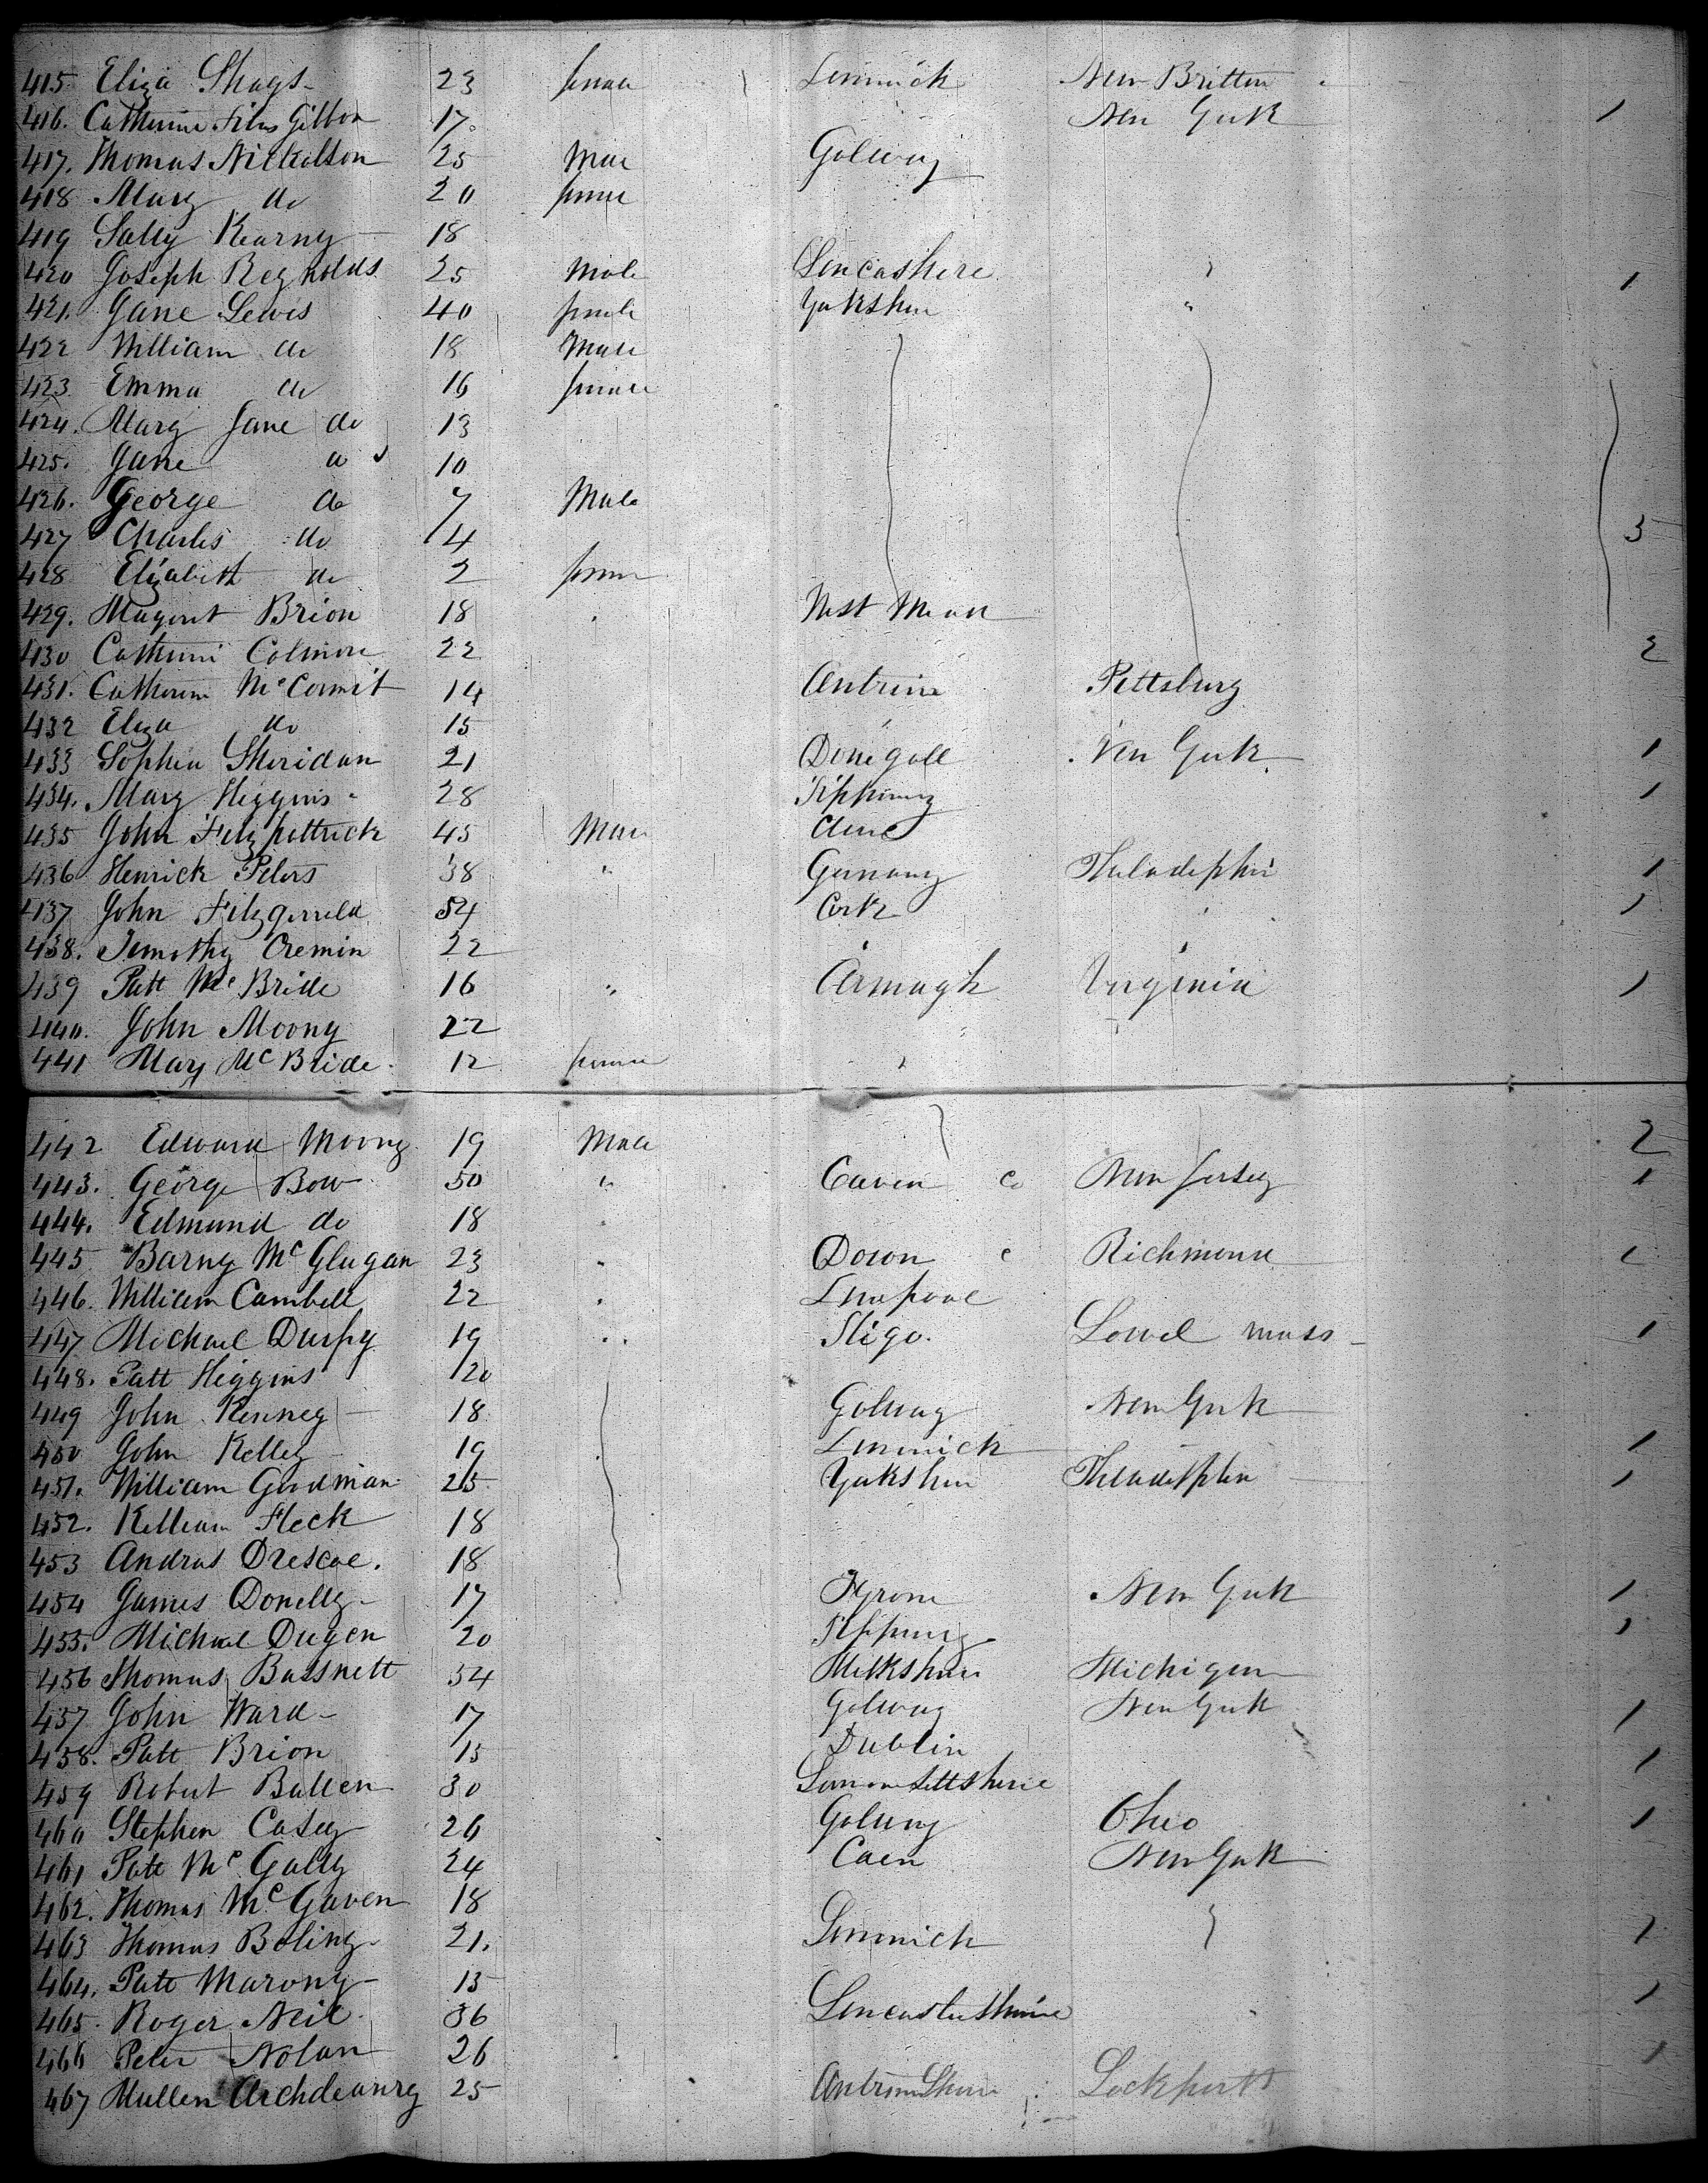 415 Eliza Shays 23 female Limrick New Britten
416. Catherine Fitz Gibbon 17. New York 1
417. Thomas Nickolson 25 Male Golway
418 Mary do 20 female
419 Sally Kearny 18
420 Joseph Reynolds 25 Male Lencashere 1
421. Jane Lewis 40 female Yorkshire "
422 William do 18 Male
423 Emma do 16 female
424. Mary Jane do 13
425. Jane do 10
426. George do 7 Male
427 Charles do 4 3
428 Elizabeth do 2 female
429. Magaret Brion 18 West Meath
430 Catherine Colmore 22 2
431. Catherine McCormit 14 Antrim Pittsburg
432 Eliza do 15
433 Sophia Sheridan 21 Donegall New York 1
434. Mary Higgins 28 Tipperary 1
435 John Fitzpattrick 45 Male Clare
436 Henrick Peters 38 " Germany Philadephia 1
437 John Fitzgerreld 54 Cork 1
438. Timothy Cremin 22
439 Patt McBride 16 " Armagh Virginia 1
440. John Moony 22
441 Mary McBride 12 female
442 Edward Moony 19 Male 2
443. George Bow 50 " Caven Co New Jersey 1
444. Edmund do 18
445 Barny McGlugan 23 Down c Richmond
446. William Cambell 22 Liverpool
447 Michael Durfy 19 Sligo. Lowel mass 1
448. Patt Higgins 20
449 John Kenney 18 Golway New York
450 John Kelley 19 Limrick 1
451. William Goodman 25 Yorkshire Philadelphia 1
452. William Fleck 18
453 Andras Drescoe. 18
454 James Donelly 17 Tyrone New York 1
455. Michael Dugen 20 Tipperary 1
456 Thomas Bassnett 34 Michigen
457 John Ward 17 Golway New York 1
458. Patt Brion 15 Dublin 1
459 Robert Bullen 30 Sommersettsherie
460 Stephen Casey 26 Golway Ohio 1
461 Patt McGally 24 Caen New York
462. Thomas McGaven 18
463 Thomas Boling 21. Limrick 1
464. Patt Marony 15 1
465. Roger Neil 36 Lencastershire
466 Peter Nolan 26 1
467 Mullen Archdeanry 25 Antrim Shire Lockport